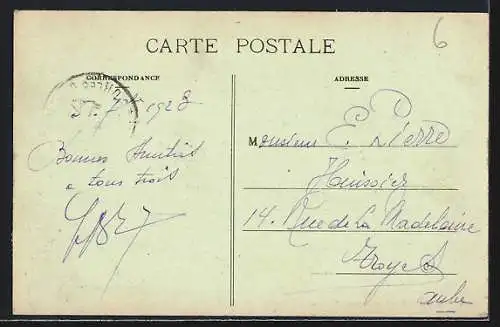 6
CARTE POSTALE
CORRESPONDANCE
ADRESSE
7 1928
Monsieur E. Pierre
Bonnes Amitiés
Huissier
a tous trois
14. Rue de la Madeleine
Troyes
Aube